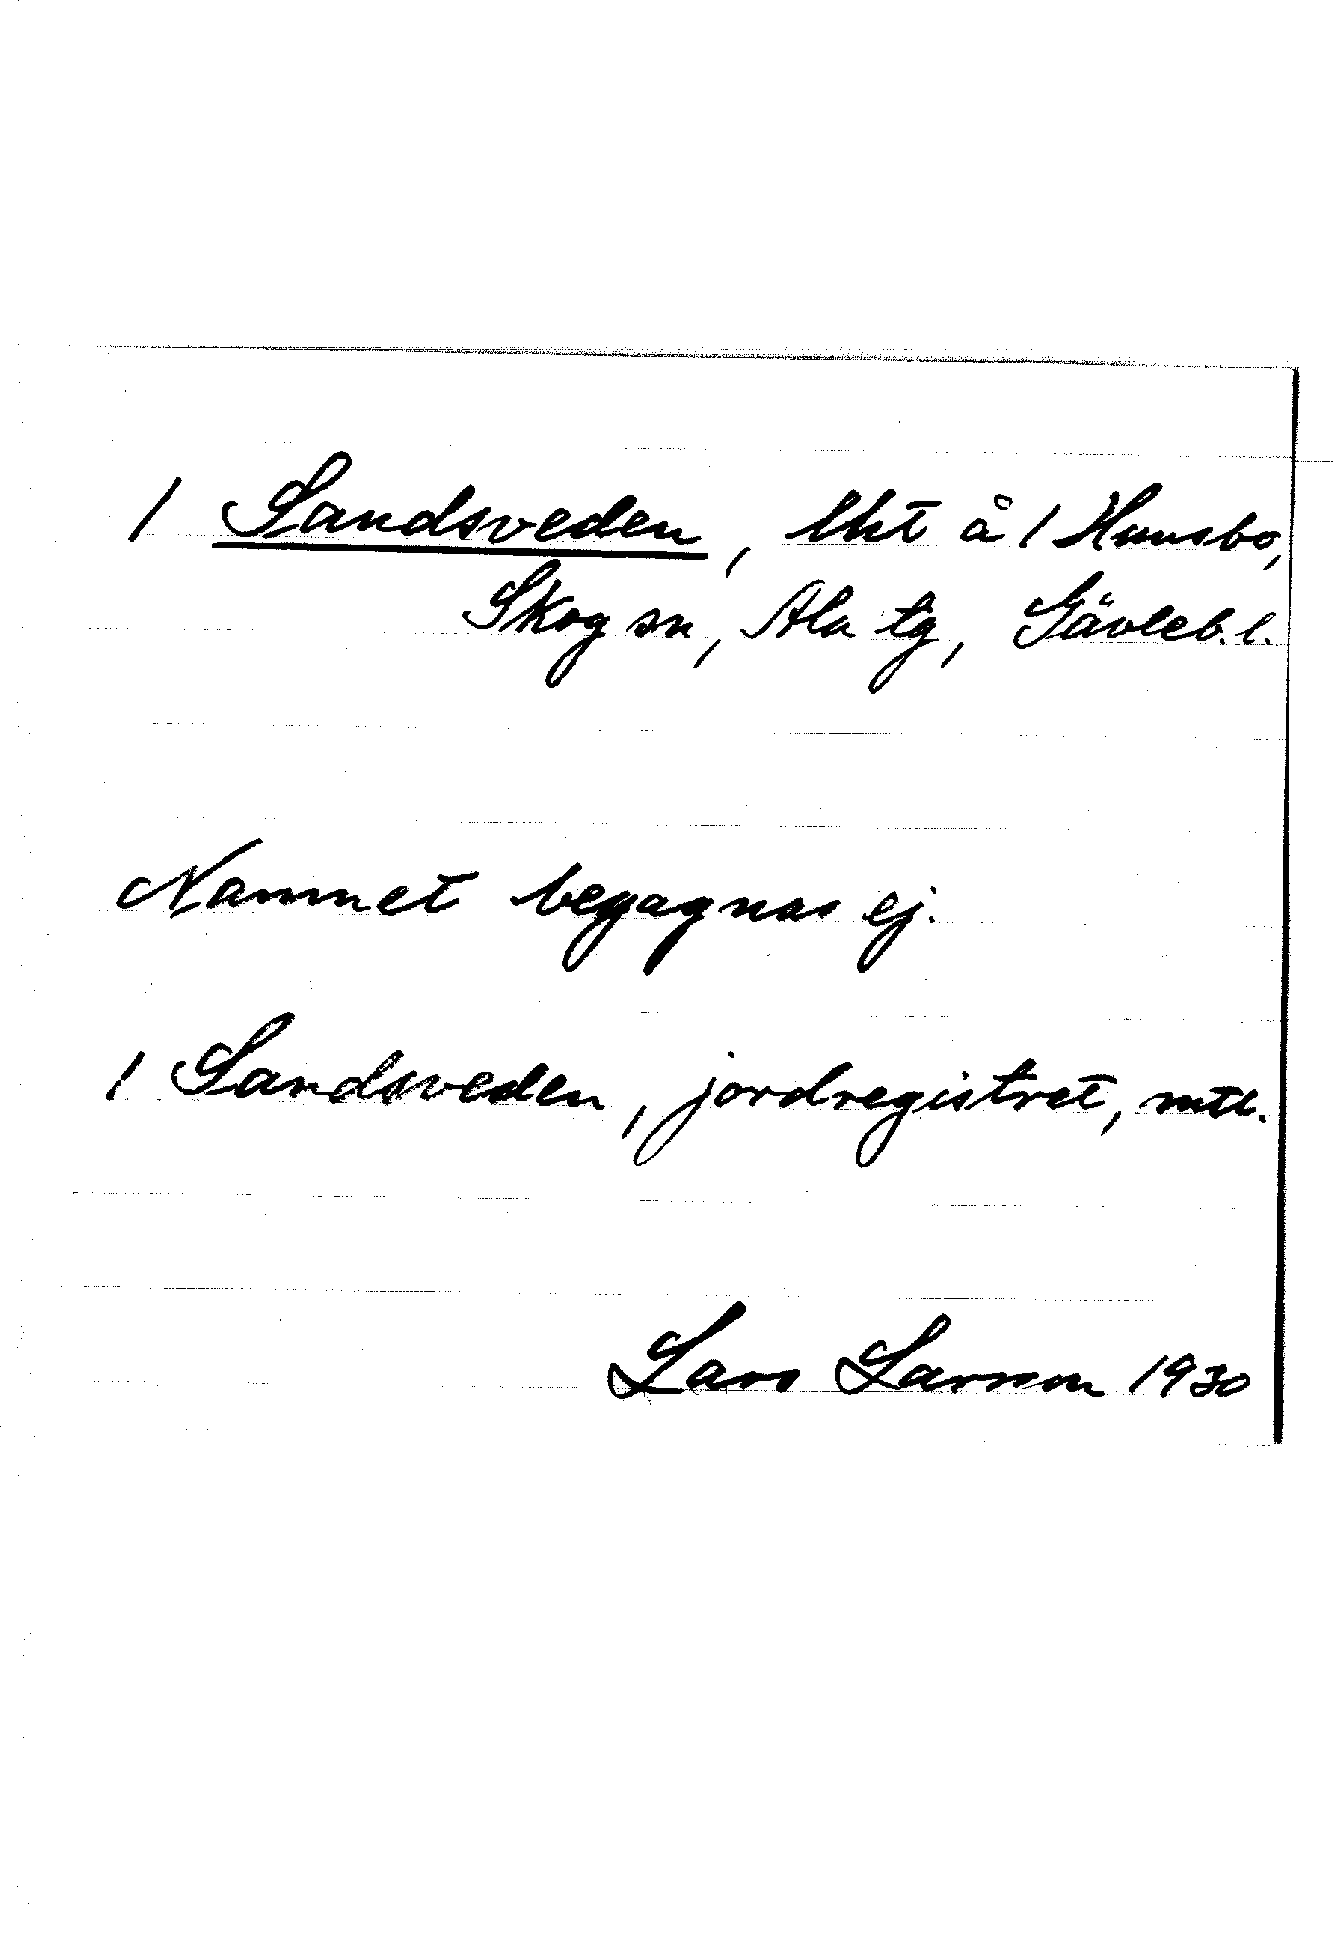 / Sandsveden, lht å / Hunsbo,
Skog sn, Ala tg, Gävleb. l.
Namnet begagnas ej.
/ Sandsveden, jordregistret, mtl.
Lars Larsson 1930